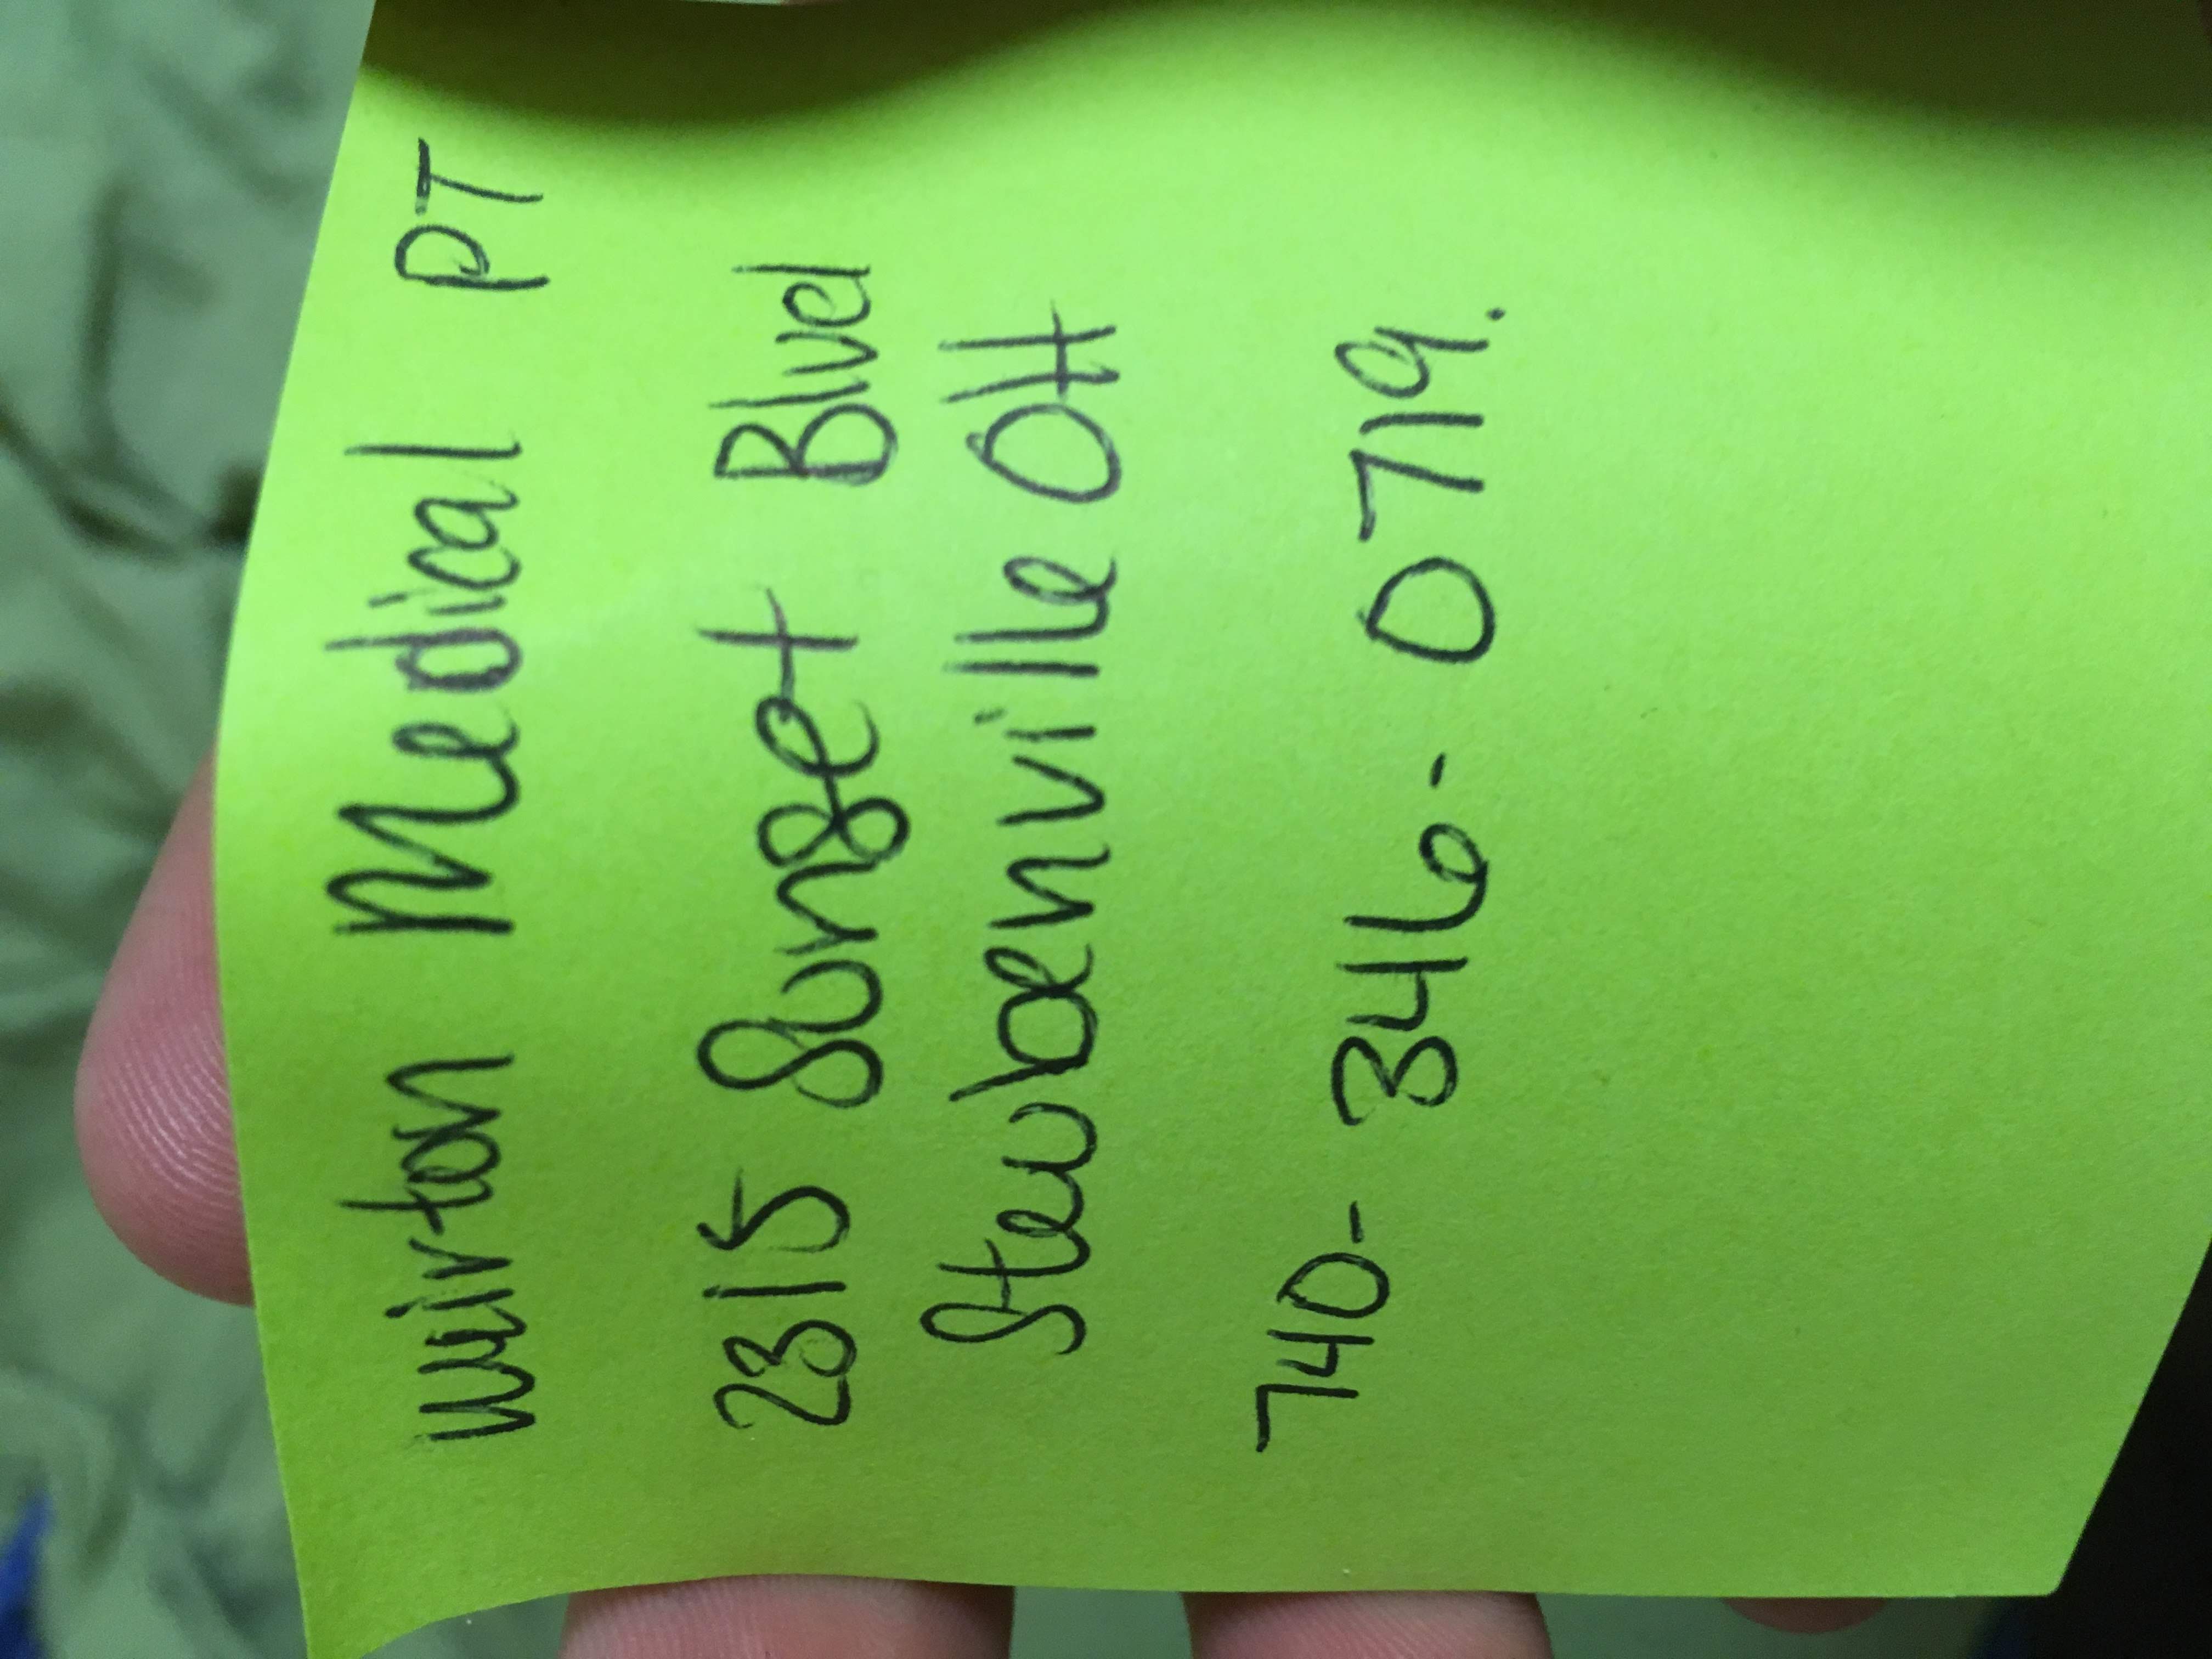 Weirton Medical PT
2315 Sunset Blvd
Steubenville OH
740-346-0719.